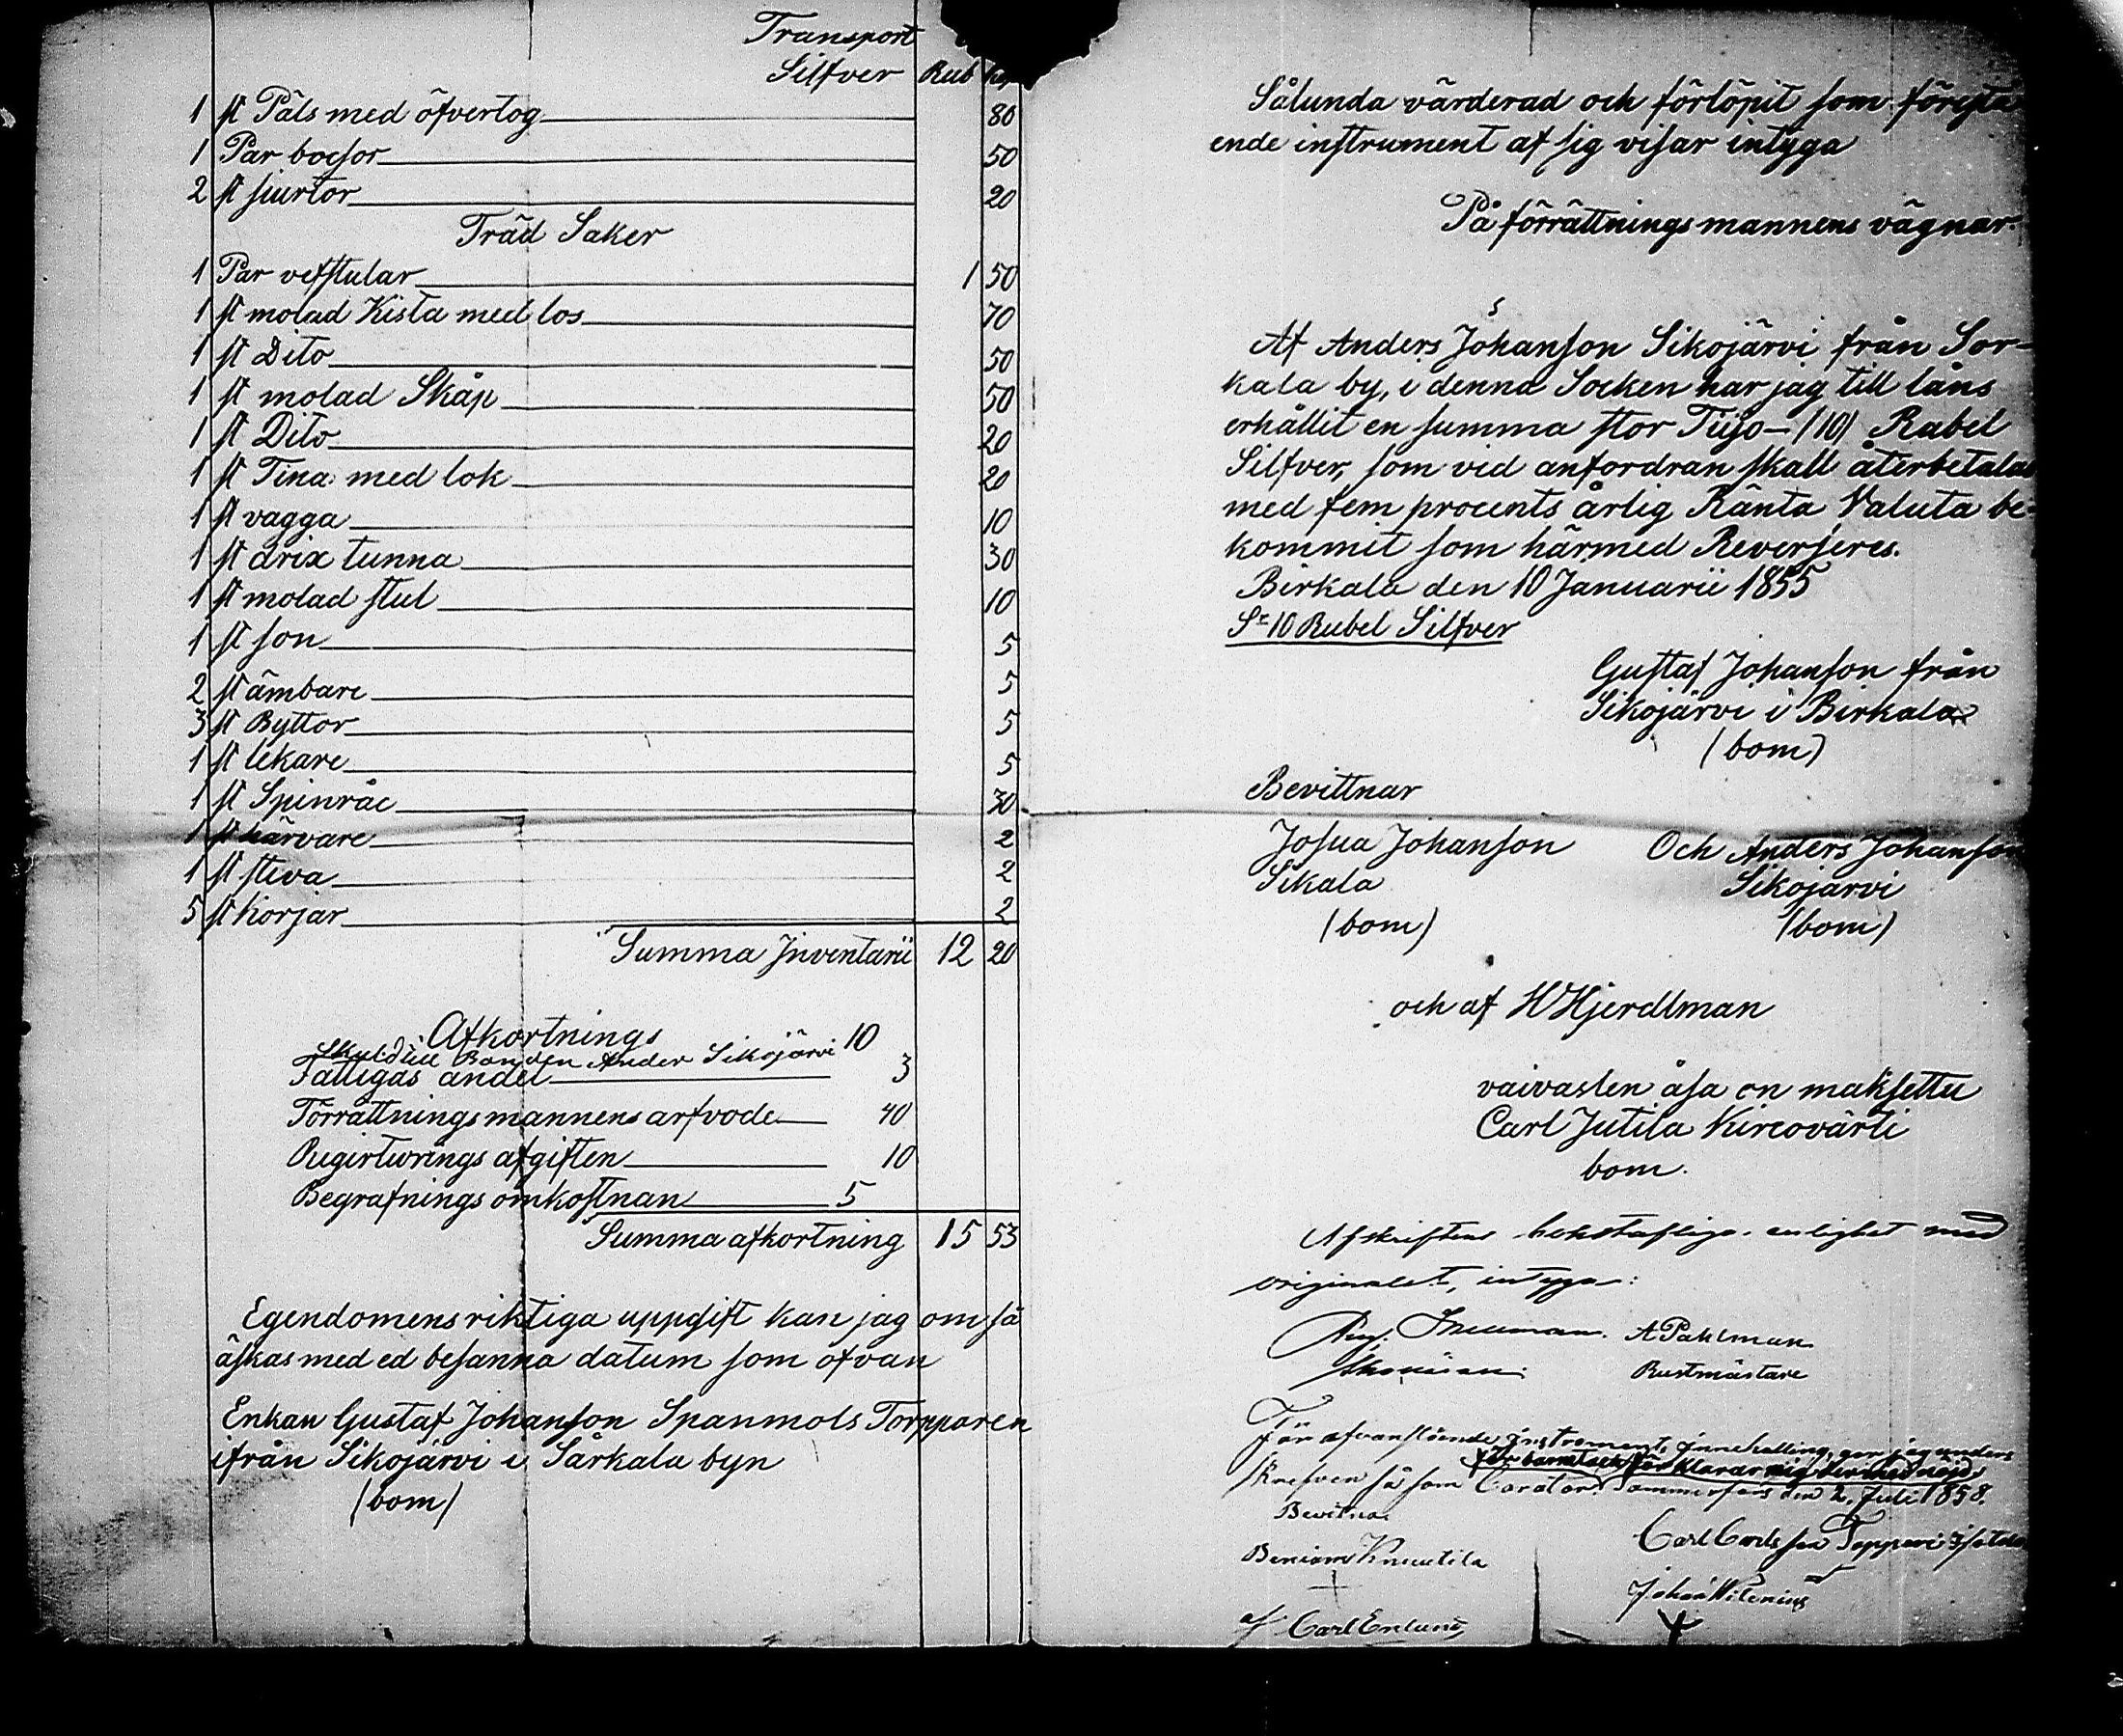 Transport
Silfver Rub
1 st Päls med öfvertog 80
1 Par bocsor 50
2 st siurtor 20
Träd Saker
1 Par vefstular 1 50
1 st molad Kista med los 70
1 st Dito 50
1 st molad Skåp 50
1 st Dito 20
1 st Tina med lok 20
1 st vagga 10
1 st drix tunna 30
1 st molad stul 10
1 st son 5
2 st ämbare 5
3 st Byttor 5
1 st lekare 5
1 st Spinråc 30
1 st härvare 2
1 st steva 2
5 st korjar 2
Summa Inventarii 12 20
Afkortnings
Skuld till Bonden Ander Sikojärvi 10
Fattigas andel 3
Förrättningsmannens arfvode 40
Regirtwrings afgiften 10
Begrafnings omkostnan 5
Summa afkortning 15 53
Egendomens riktiga uppgift kan jag om så
äskas med ed besanna datum som ofvan
Enkan Gustaf Johanson Spanmols Torpparen
ifrån Sikojärvi i Sårkala byn
(bom)
Sålunda värderad och förlöpit som förestå
ende instrument af sig visar intyga
På förrättningsmannens vägnar
Af Anders Johanson Sikojärvi från Sor-
kala by, i denna Socken har jag till låns
erhållit en summa stor Tiijo - (10) Rabel
Silfver, som vid anfordran skall återbetalas
med fem procents årlig Ränta Valuta be-
kommit som härmed Reverseres.
Birkala den 10 Januarii 1855
Sr 10 Rubel Silfver
Gustaf Johanson från
Sikojärvi i Birkala
(bom)
Bevittnar
Josua Johanson Och Anders Johanson
Sikala Sikojärvi
(bom) (bom)
och af H Hjerdlman
vaivasten åsa on maksettu
Carl Jutila Kircovärti
bom.
Afskriftens bokstafliga enlighet med
originalet, intyga:
A Pahlman
Rustmästare
För ofvanstående instrument innehalling, ger jag unders
för barnet och förklarar mig dermed nöjd
skrefven så som Curator. Tammerfors den 2. Juli 1858.
Bevitna
Carl Carlsson Toppari
Beniam Knuutila
Johan Vilenius
af Carl Enlund